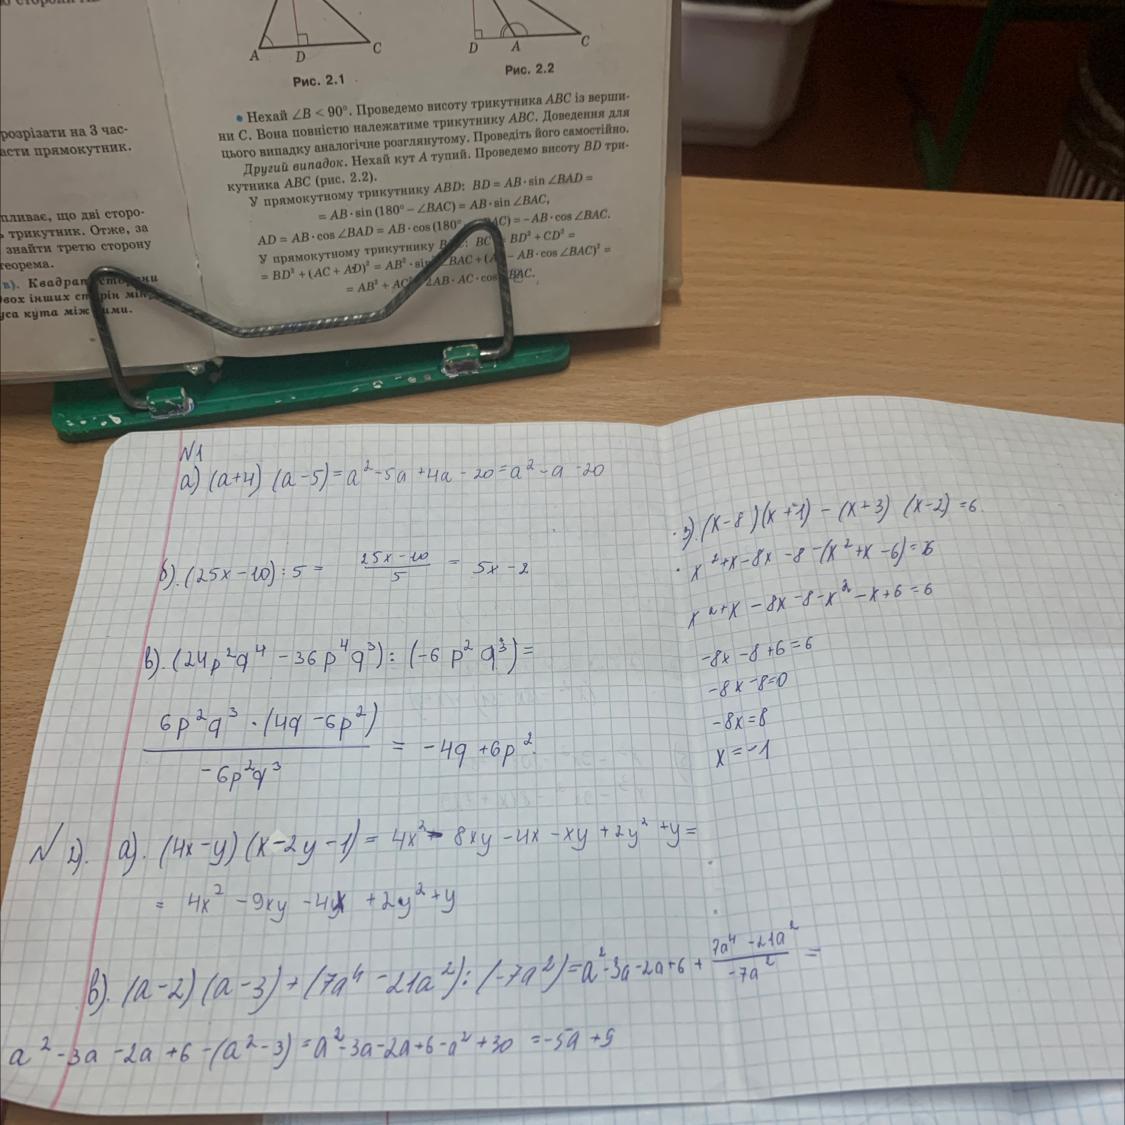 розрізати на 3 час-
асти прямокутник.
пливає, що дві сторо-
трикутник. Отже, за
знайти третю сторону
теорема.
в). Квадрат сторони
двох інших сторін мін
уса кута між ними.
A D C
Рис. 2.1
D A C
Рис. 2.2
• Нехай ∠B < 90°. Проведемо висоту трикутника ABC із верши-
ни C. Вона повністю належатиме трикутнику ABC. Доведення для
цього випадку аналогічне розглянутому. Проведіть його самостійно.
Другий випадок. Нехай кут A тупий. Проведемо висоту BD три-
кутника ABC (рис. 2.2).
У прямокутному трикутнику ABD: BD = AB · sin ∠BAD =
= AB · sin (180° – ∠BAC) = AB · sin ∠BAC,
AD = AB · cos ∠BAD = AB · cos (180° – ∠BAC) = –AB · cos ∠BAC.
У прямокутному трикутнику BC = BD² + CD² =
= BD² + (AC + AD)² = AB² · sin² ∠BAC + (A – AB · cos ∠BAC)² =
= AB² + AC² 2AB · AC · cos BAC.
N1
а) (a+4) (a-5) = a² - 5a + 4a - 20 = a² - a - 20
б). (25x - 10) : 5 = 25x - 10 / 5 = 5x - 2
в). (24p²q⁴ - 36p⁴q³) : (-6p²q³) =
6p²q³ · (4q - 6p²) / -6p²q³ = -4q + 6p²
N 2). а). (4x-y) (x-2y-1) = 4x² - 8xy - 4x - xy + 2y² + y =
= 4x² - 9xy - 4x + 2y² + y
в). (a-2) (a-3) + (7a⁴ - 21a²) : (-7a²) = a² - 3a - 2a + 6 + 7a⁴ - 21a² / -7a² =
a² - 3a - 2a + 6 - (a² - 3) = a² - 3a - 2a + 6 - a² + 30 = -5a + 9
3). (x-8)(x+1) - (x+3) (x-2) = 6
x² + x - 8x - 8 - (x² + x - 6) = 6
x² + x - 8x - 8 - x² - x + 6 = 6
-8x - 8 + 6 = 6
-8x - 8 = 0
-8x = 8
x = -1